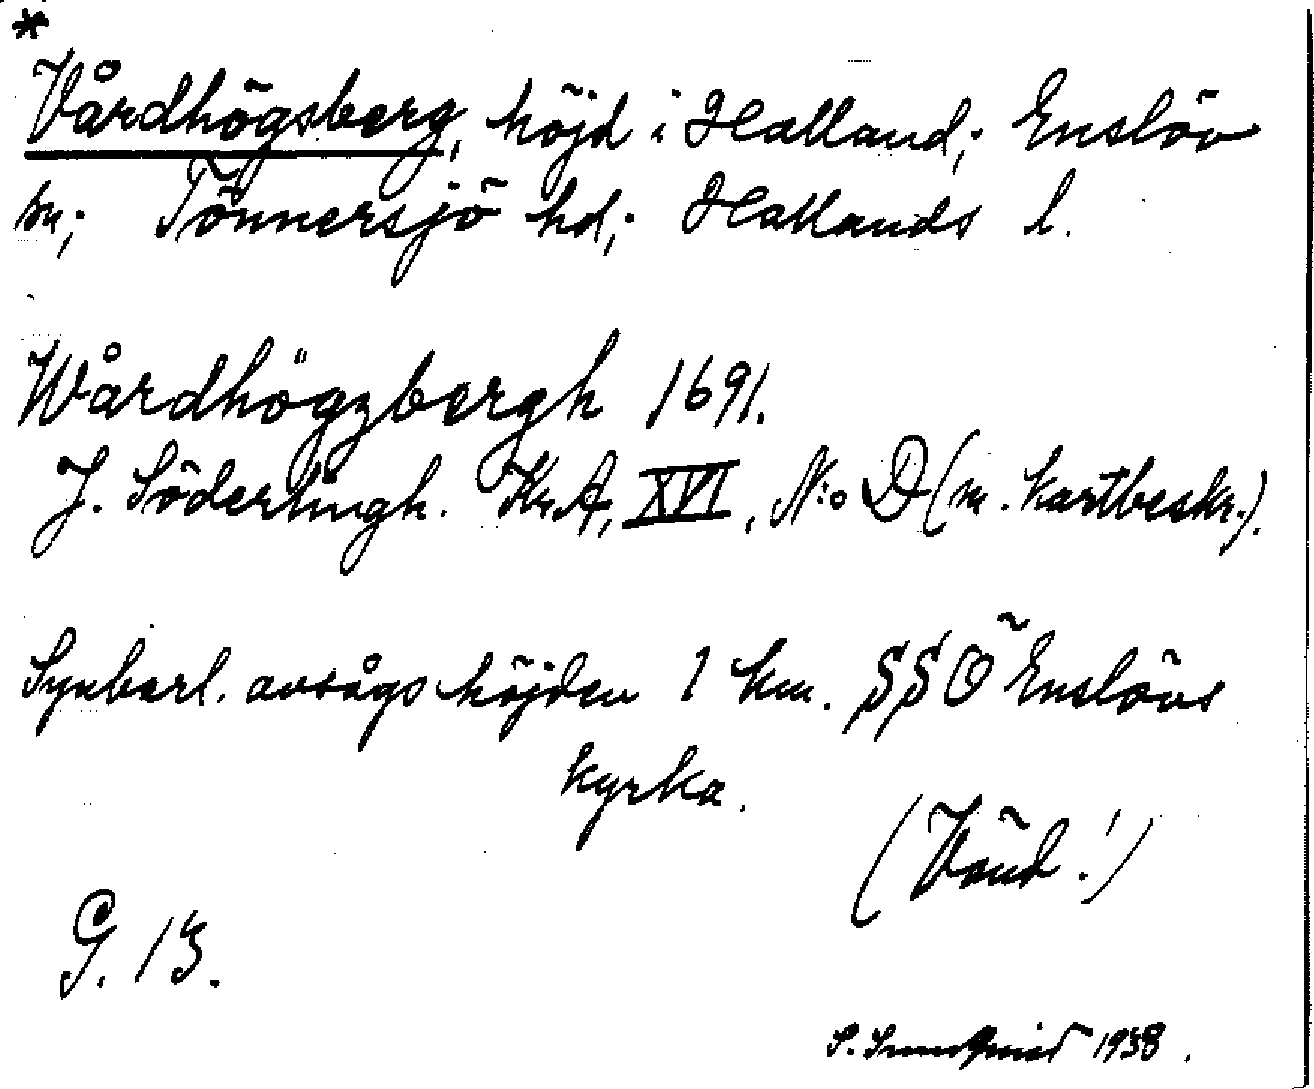 *
Vårdhögsberg, höjd i Halland; Enslöv
sn; Tönnersjö hd; Hallands l.
Wårdhögzbergh 1691.
J. Söderlingh. Kr.A, XVI, N:o D (m. kartbeskr.).
Synbarl. avsågs höjden 1 km. SSÖ Enslövs
kyrka.
(Vänd!)
G. 13.
S. Sundqvist 1938.